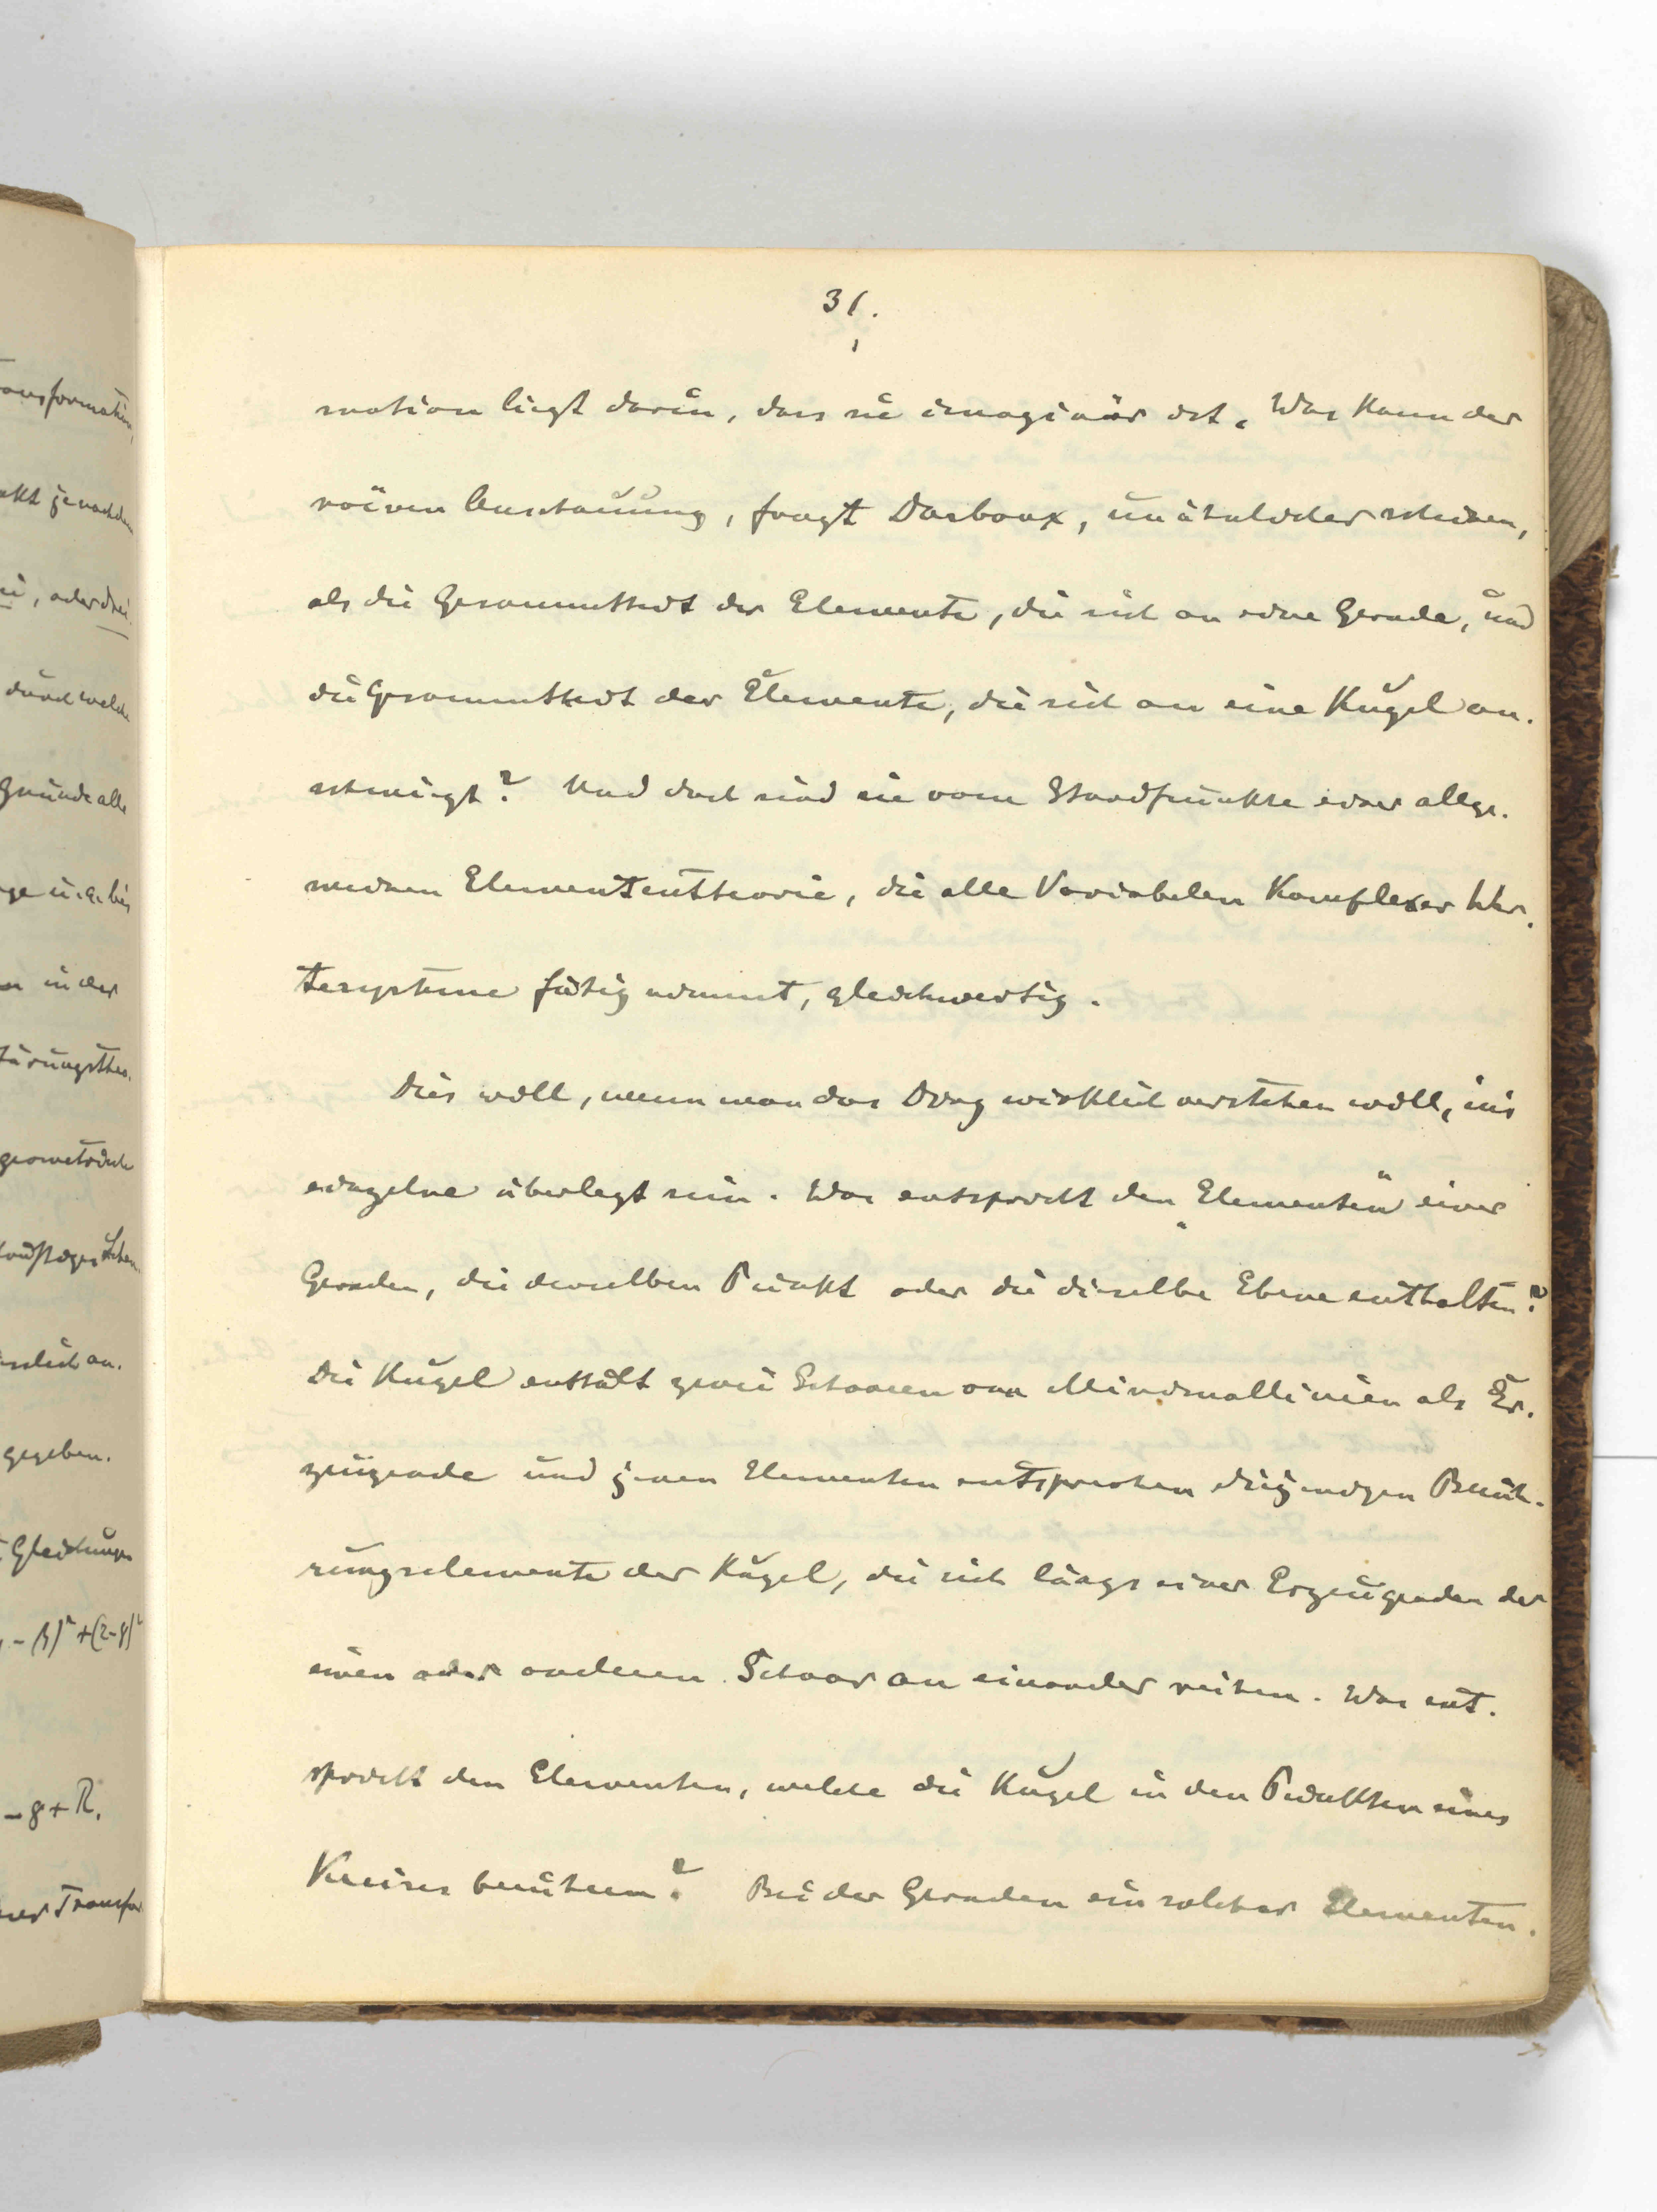 31.
mation liegt darin, dass sie imaginär ist. Was kann der
naiven Anschauung, fragt Darboux, unähnlicher scheinen,
als die Gesammtheit der Elemente, die sich an eine Gerade, und
die Gesammtheit der Elemente, die sich an eine Kugel an-
schmiegt? Und doch sind sie vom Standpunkte einer allge-
meinen Elemententheorie, die alle Variabelen komplexer Wer-
tesysteme fähig nimmt, gleichwertig.
Dies will, wenn man das Ding wirklich verstehen will, ins
einzelne überlegt sein. Was entspricht den "Elementen" einer
Geraden, die denselben Punkt oder die dieselbe Ebene enthalten?
Die Kugel enthält zwei Schaaren von Minimallinien als Er-
zeugende und jenen Elementen entsprechen diejenigen Berüh-
rungselemente der Kugel, die sich längs einer Erzeugenden der
einen oder anderen Schaar an einander reihen. Was ent-
spricht den Elementen, welche die Kugel in den Punkten eines
Kreises berühren? Bei der Geraden ein solcher Elementen-
ansformation,
nkt jenachdem
ei, oder drei
durch welche
Grunde alle
ge u. a. bis
n in der
geometrische
gegeben.
Gleichungen
- β)² + (z-γ)²
- γ + R.
ner Transfor